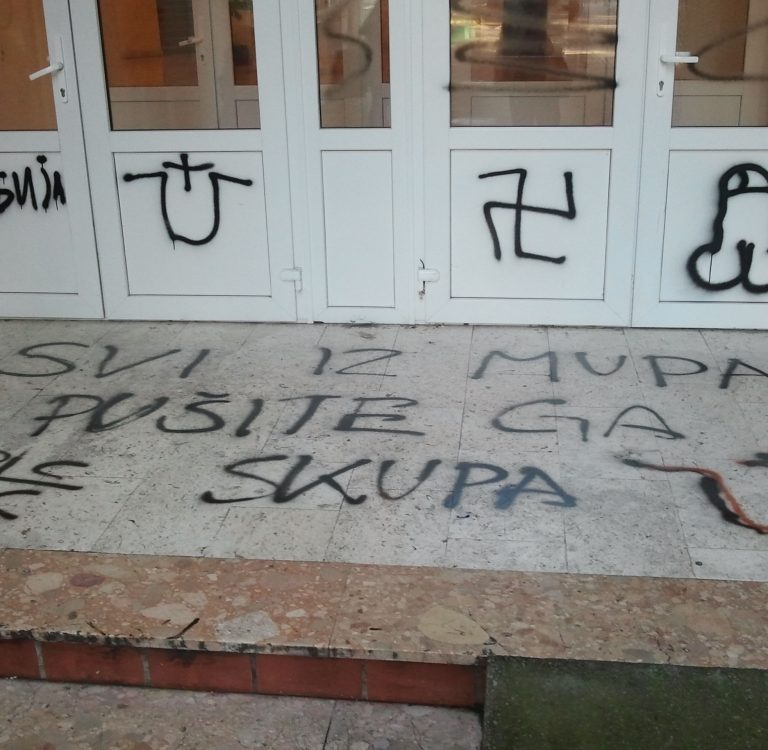 SVI IZ MUPA
PUŠITE GA
SKUPA